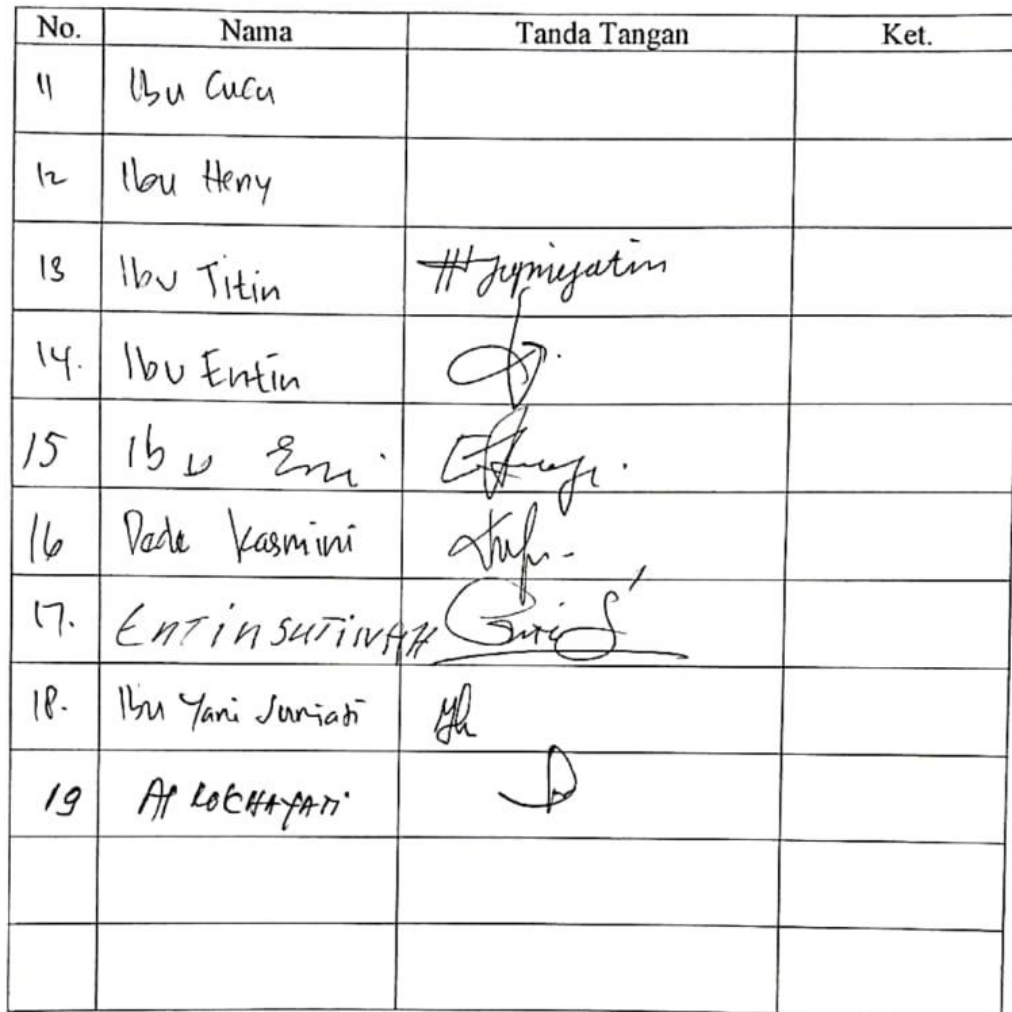 No. Nama Tanda Tangan Ket.
11 Ibu Cucu
12 Ibu Heny
13 Ibu Titin
14. Ibu Entin
15 Ibu Eni
16 Dade Kasmini
17. ENTIN SUTINAH
18. Ibu Yani Suniati
19 AI ROKHAYATI